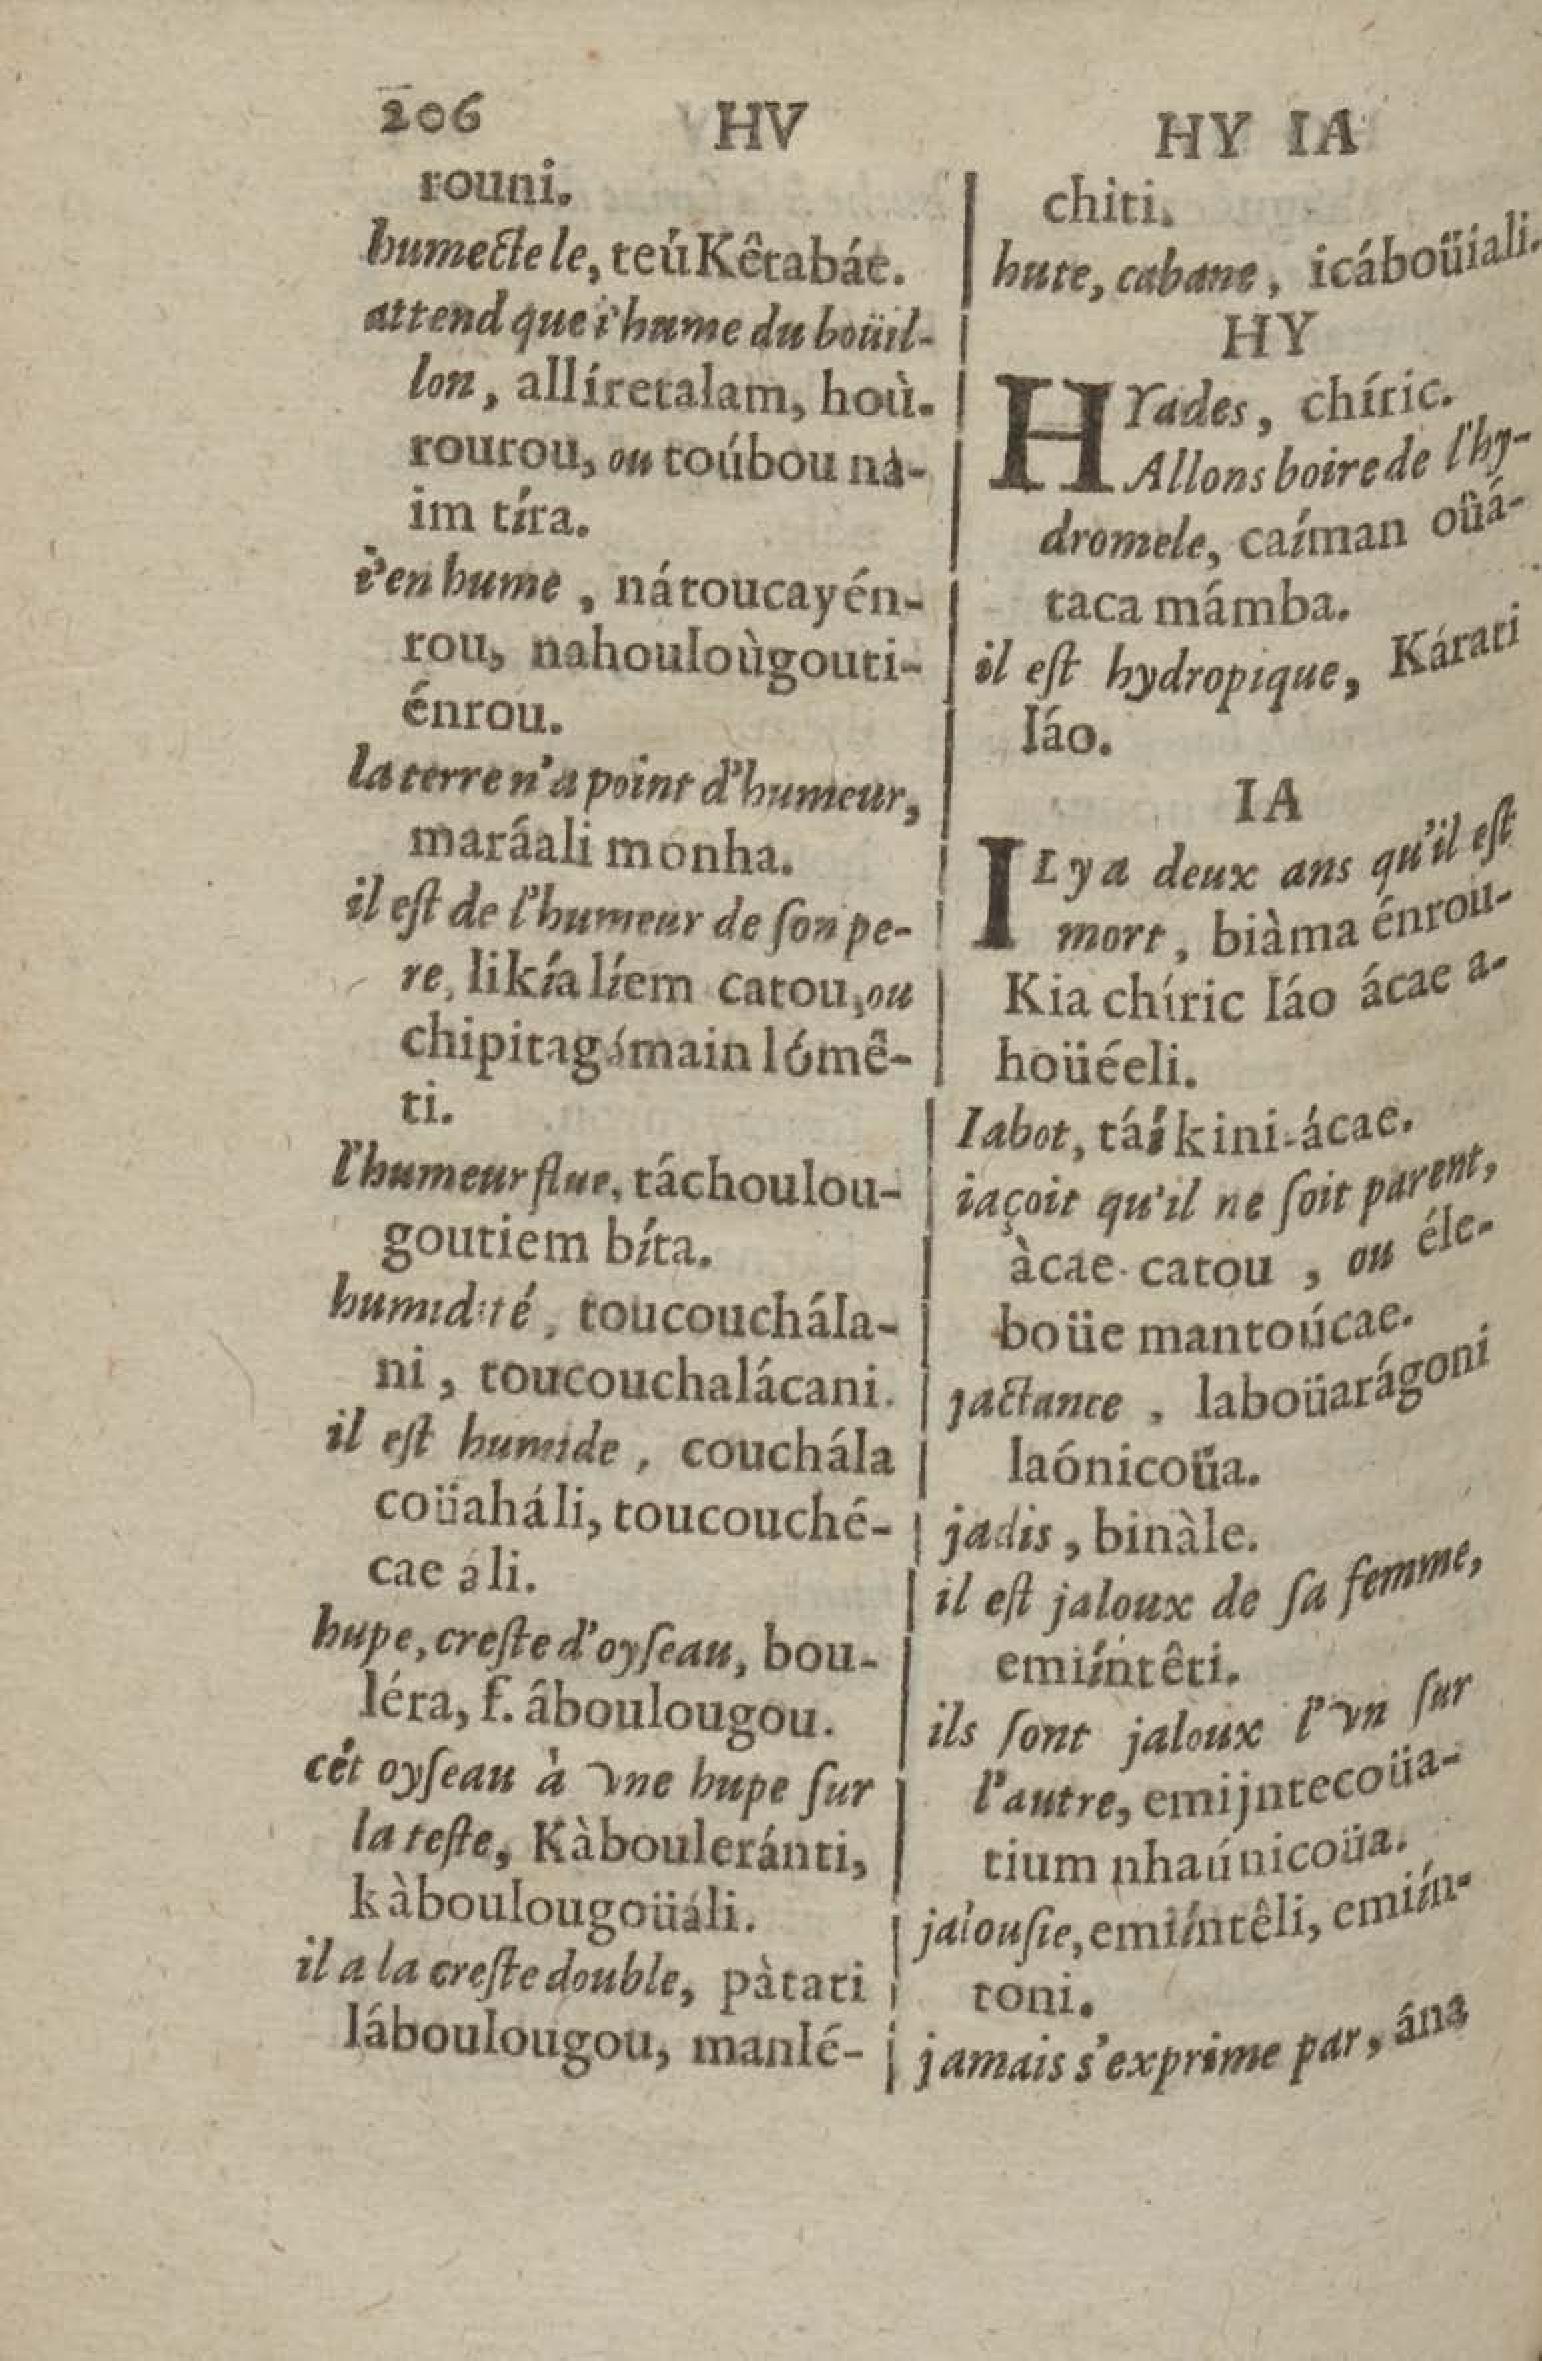 206 HV
rouni.
humecte le, teúKêtabáe.
attend que i'hume du boüil-
lon, allíretalam, hoù.
rourou, ou toúbou na-
im tíra.
i'en hume, nátoucayén-
rou, nahouloùgouti-
énrou.
la terre n'a point d'humeur,
maráali mónha.
il eſt de l'humeur de ſon pe-
re, likía líem catou, ou
chipitagámain lómê-
ti.
l'humeur flue, táchoulou-
goutiem bíta.
humidité, toucouchála-
ni, toucouchalácani.
il eſt humide, couchála
coüaháli, toucouché-
cae áli.
hupe, creſte d'oyſeau, bou-
léra, f. âboulougou.
cét oyſeau à vne hupe ſur
la teſte, Kàbouleránti,
kàboulougoüáli.
il a la creſte double, pàtati
láboulougou, manlé-
HY IA
chiti.
hute, cabane, icáboüiali.
HY
HYades, chíric.
Allons boire de l'hy-
dromele, caíman oüá-
taca mámba.
il eſt hydropique, Kárati
Iáo.
IA
IL y a deux ans qu'il eſt
mort, biàma énrou-
Kia chíric Iáo ácae a-
hoüéeli.
Iabot, táíkini-ácae.
iaçoit qu'il ne ſoit parent,
àcae catou, ou éle-
boüe mantoúcae.
jactance, laboüarágoni
laónicoüa.
jadis, binàle.
il eſt jaloux de ſa femme,
emiíntêti.
ils ſont jaloux l'vn ſur
l'autre, emijntecoüa-
tium nhaúnicoüa.
jalouſie, emiíntêli, emiín-
toni.
jamais s'exprime par, ána